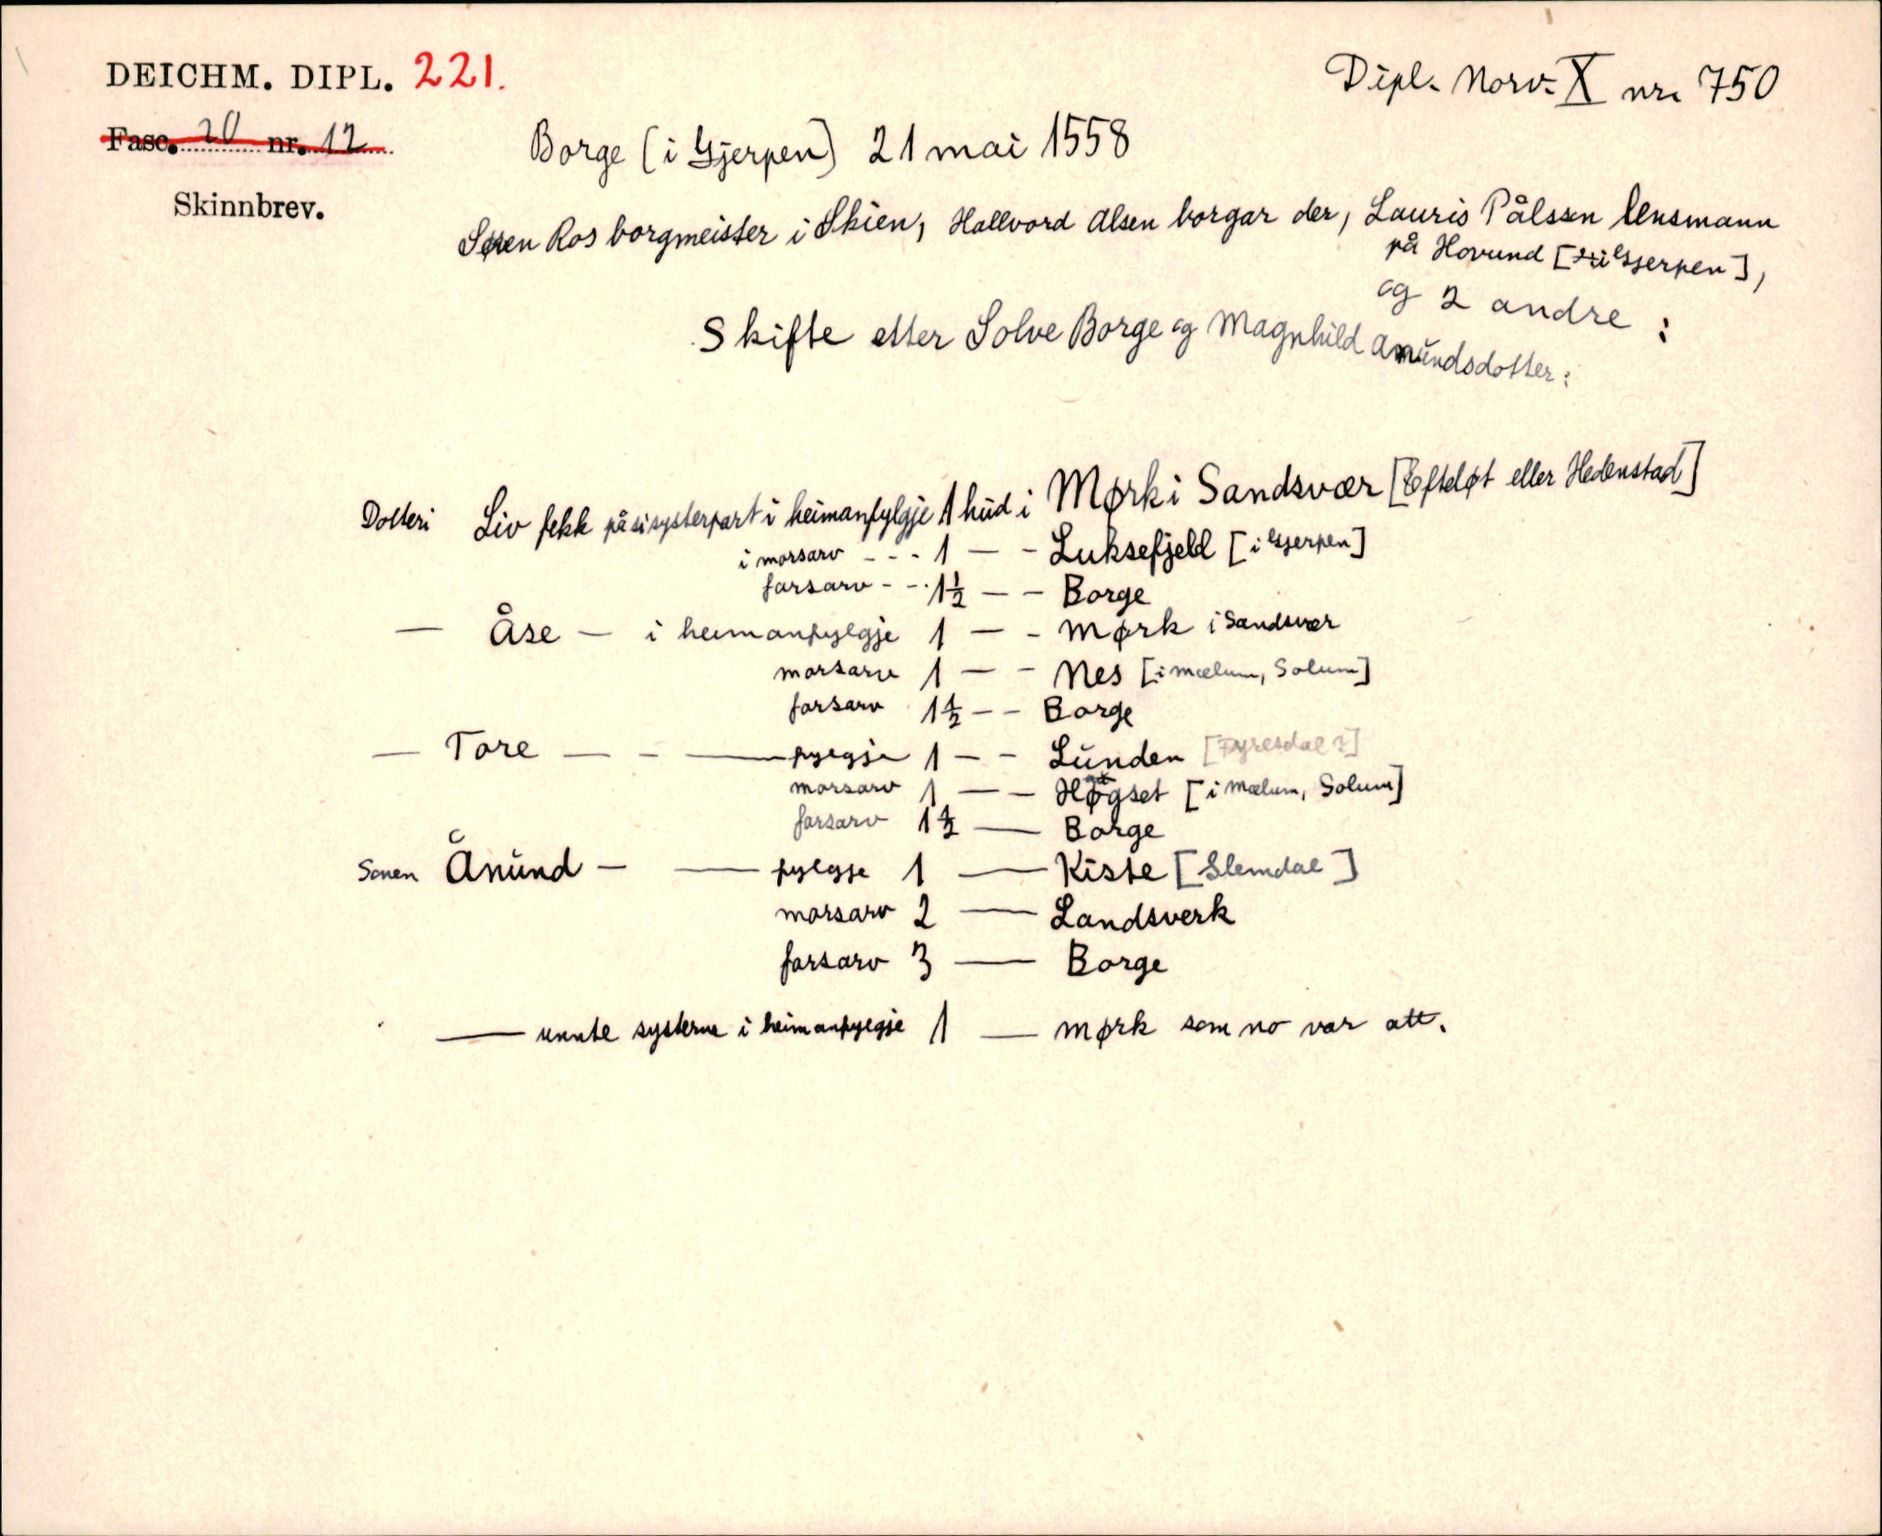 DEICHM. DIPL. 221.
Dipl. Norv. X nr. 750
Fasc. 20 nr. 12
Borge (i Gjerpen) 21 mai 1558
Skinnbrev.
Søren Ros borgmeister i Skien, Hallvord Alsen borgar der, Lauris Pålssøn lensmann
på Hovund [i Gjerpen],
og 2 andre :
Skifte etter Solve Borge og Magnhild Amundsdotter:
Dotteri Liv fekk på si systerpart i heimanfylgje 1 hud i Mørk i Sandsvær [Efteløt eller Hedenstad]
i morsarv - - - 1 — - Luksefjeld [i Gjerpen]
farsarv - - . 1½ — — Borge
— Åse — i heimanfylgje 1 — - Mørk i Sandsvær
morsarv 1 — — Nes [i Mælum, Solum]
farsarv 1½ — — Borge
— Tore — - — fylgje 1 — — Lunden [Fyresdal?]
morsarv 1 — — Høgset [i Mælum, Solum]
farsarv 1½ — Borge
Sonen Ånund — — fylgje 1 — Kiste [Slemdal]
morsarv 2 — Landsverk
farsarv 3 — Borge
— unnte systerne i heimanfylgje 1 — Mørk som no var att.